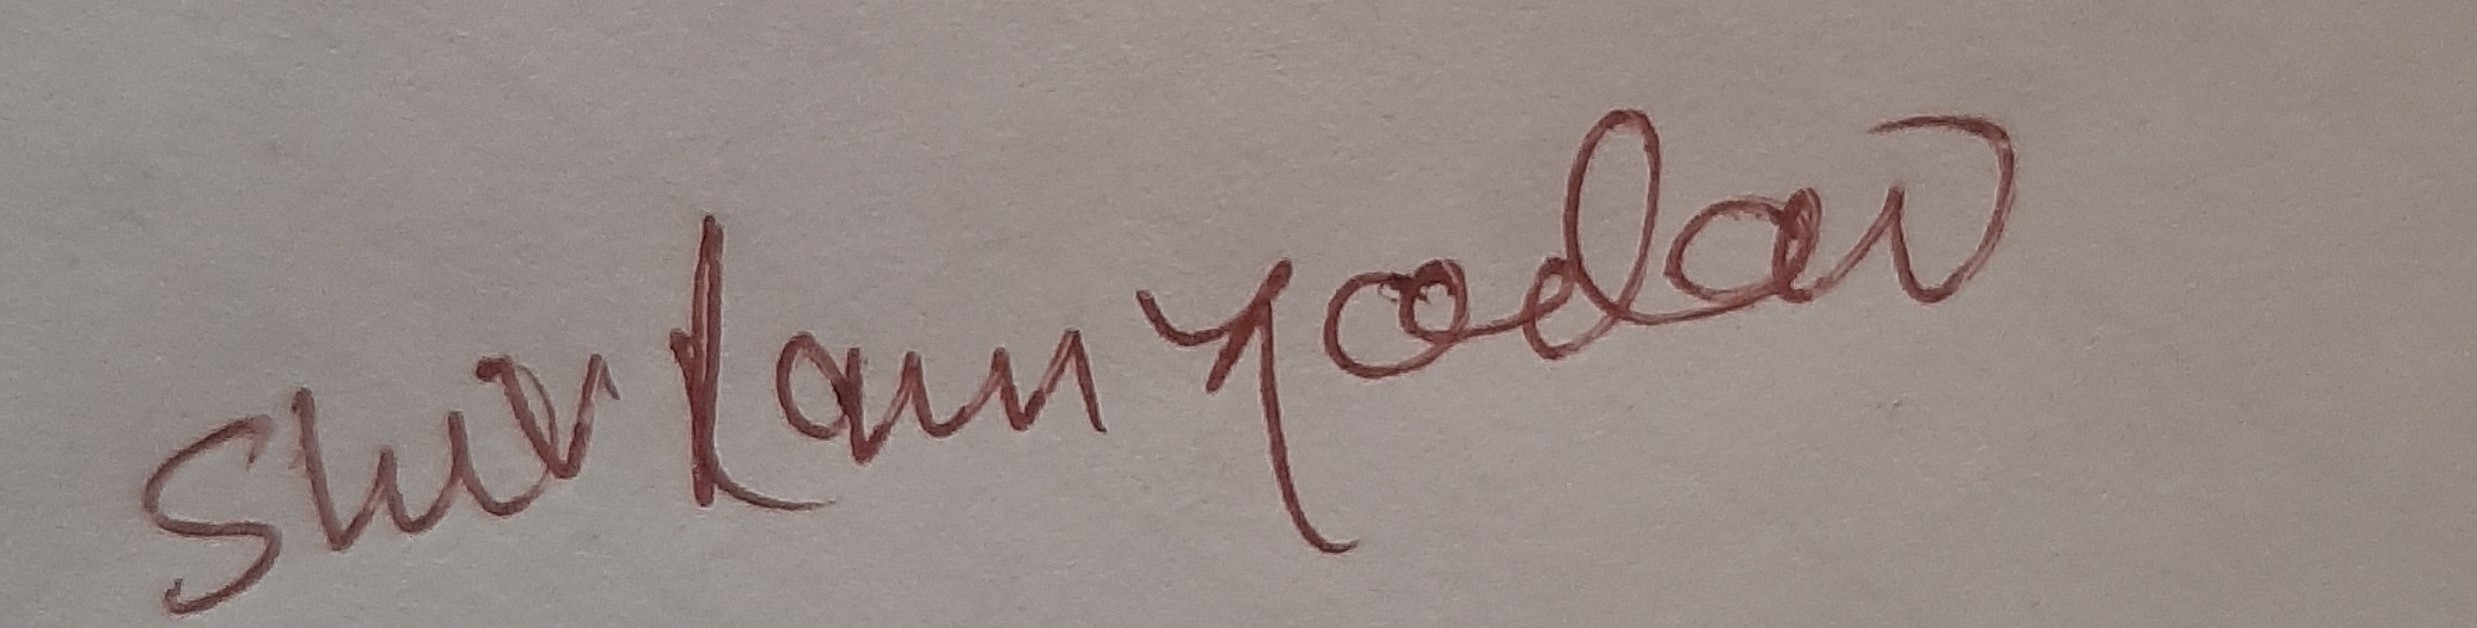 Shivkam Yadav